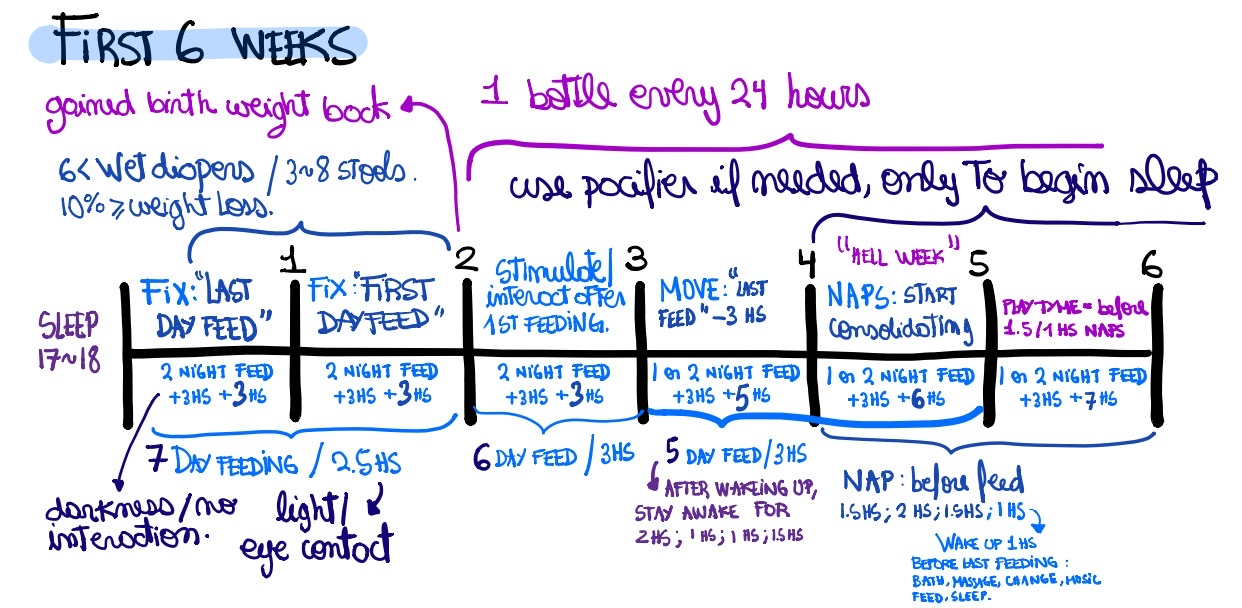 FIRST 6 WEEKS
gained birth weight back
1 bottle every 24 hours
6< Wet diapers / 3~8 stools.
10% ≥ weight loss.
use pacifier if needed, only To begin sleep
1
2
3
4
5
6
"HELL WEEK"
SLEEP
17~18
FIX: "LAST
DAY FEED"
FIX: "FIRST
DAY FEED"
Stimulate/
interact after
1ST FEEDING.
MOVE: "LAST
FEED" -3 HS
NAPS: START
consolidating
PLAY TYME = before
1.5/1 HS NAPS
2 NIGHT FEED
+3HS +3HS
2 NIGHT FEED
+3HS +3HS
2 NIGHT FEED
+3HS +3HS
1 or 2 NIGHT FEED
+3HS +5HS
1 or 2 NIGHT FEED
+3HS +6HS
1 or 2 NIGHT FEED
+3HS +7HS
7 DAY FEEDING / 2.5HS
6 DAY FEED / 3HS
5 DAY FEED/3HS
darkness/no
interaction.
light/
eye contact
AFTER WAKEING UP,
STAY AWAKE FOR
2HS; 1HS; 1HS; 1.5HS
NAP: before feed
1.5HS; 2HS; 1.5HS; 1HS
WAKE UP 1HS
BEFORE LAST FEEDING:
BATH, MASSAGE, CHANGE, MUSIC
FEED, SLEEP.